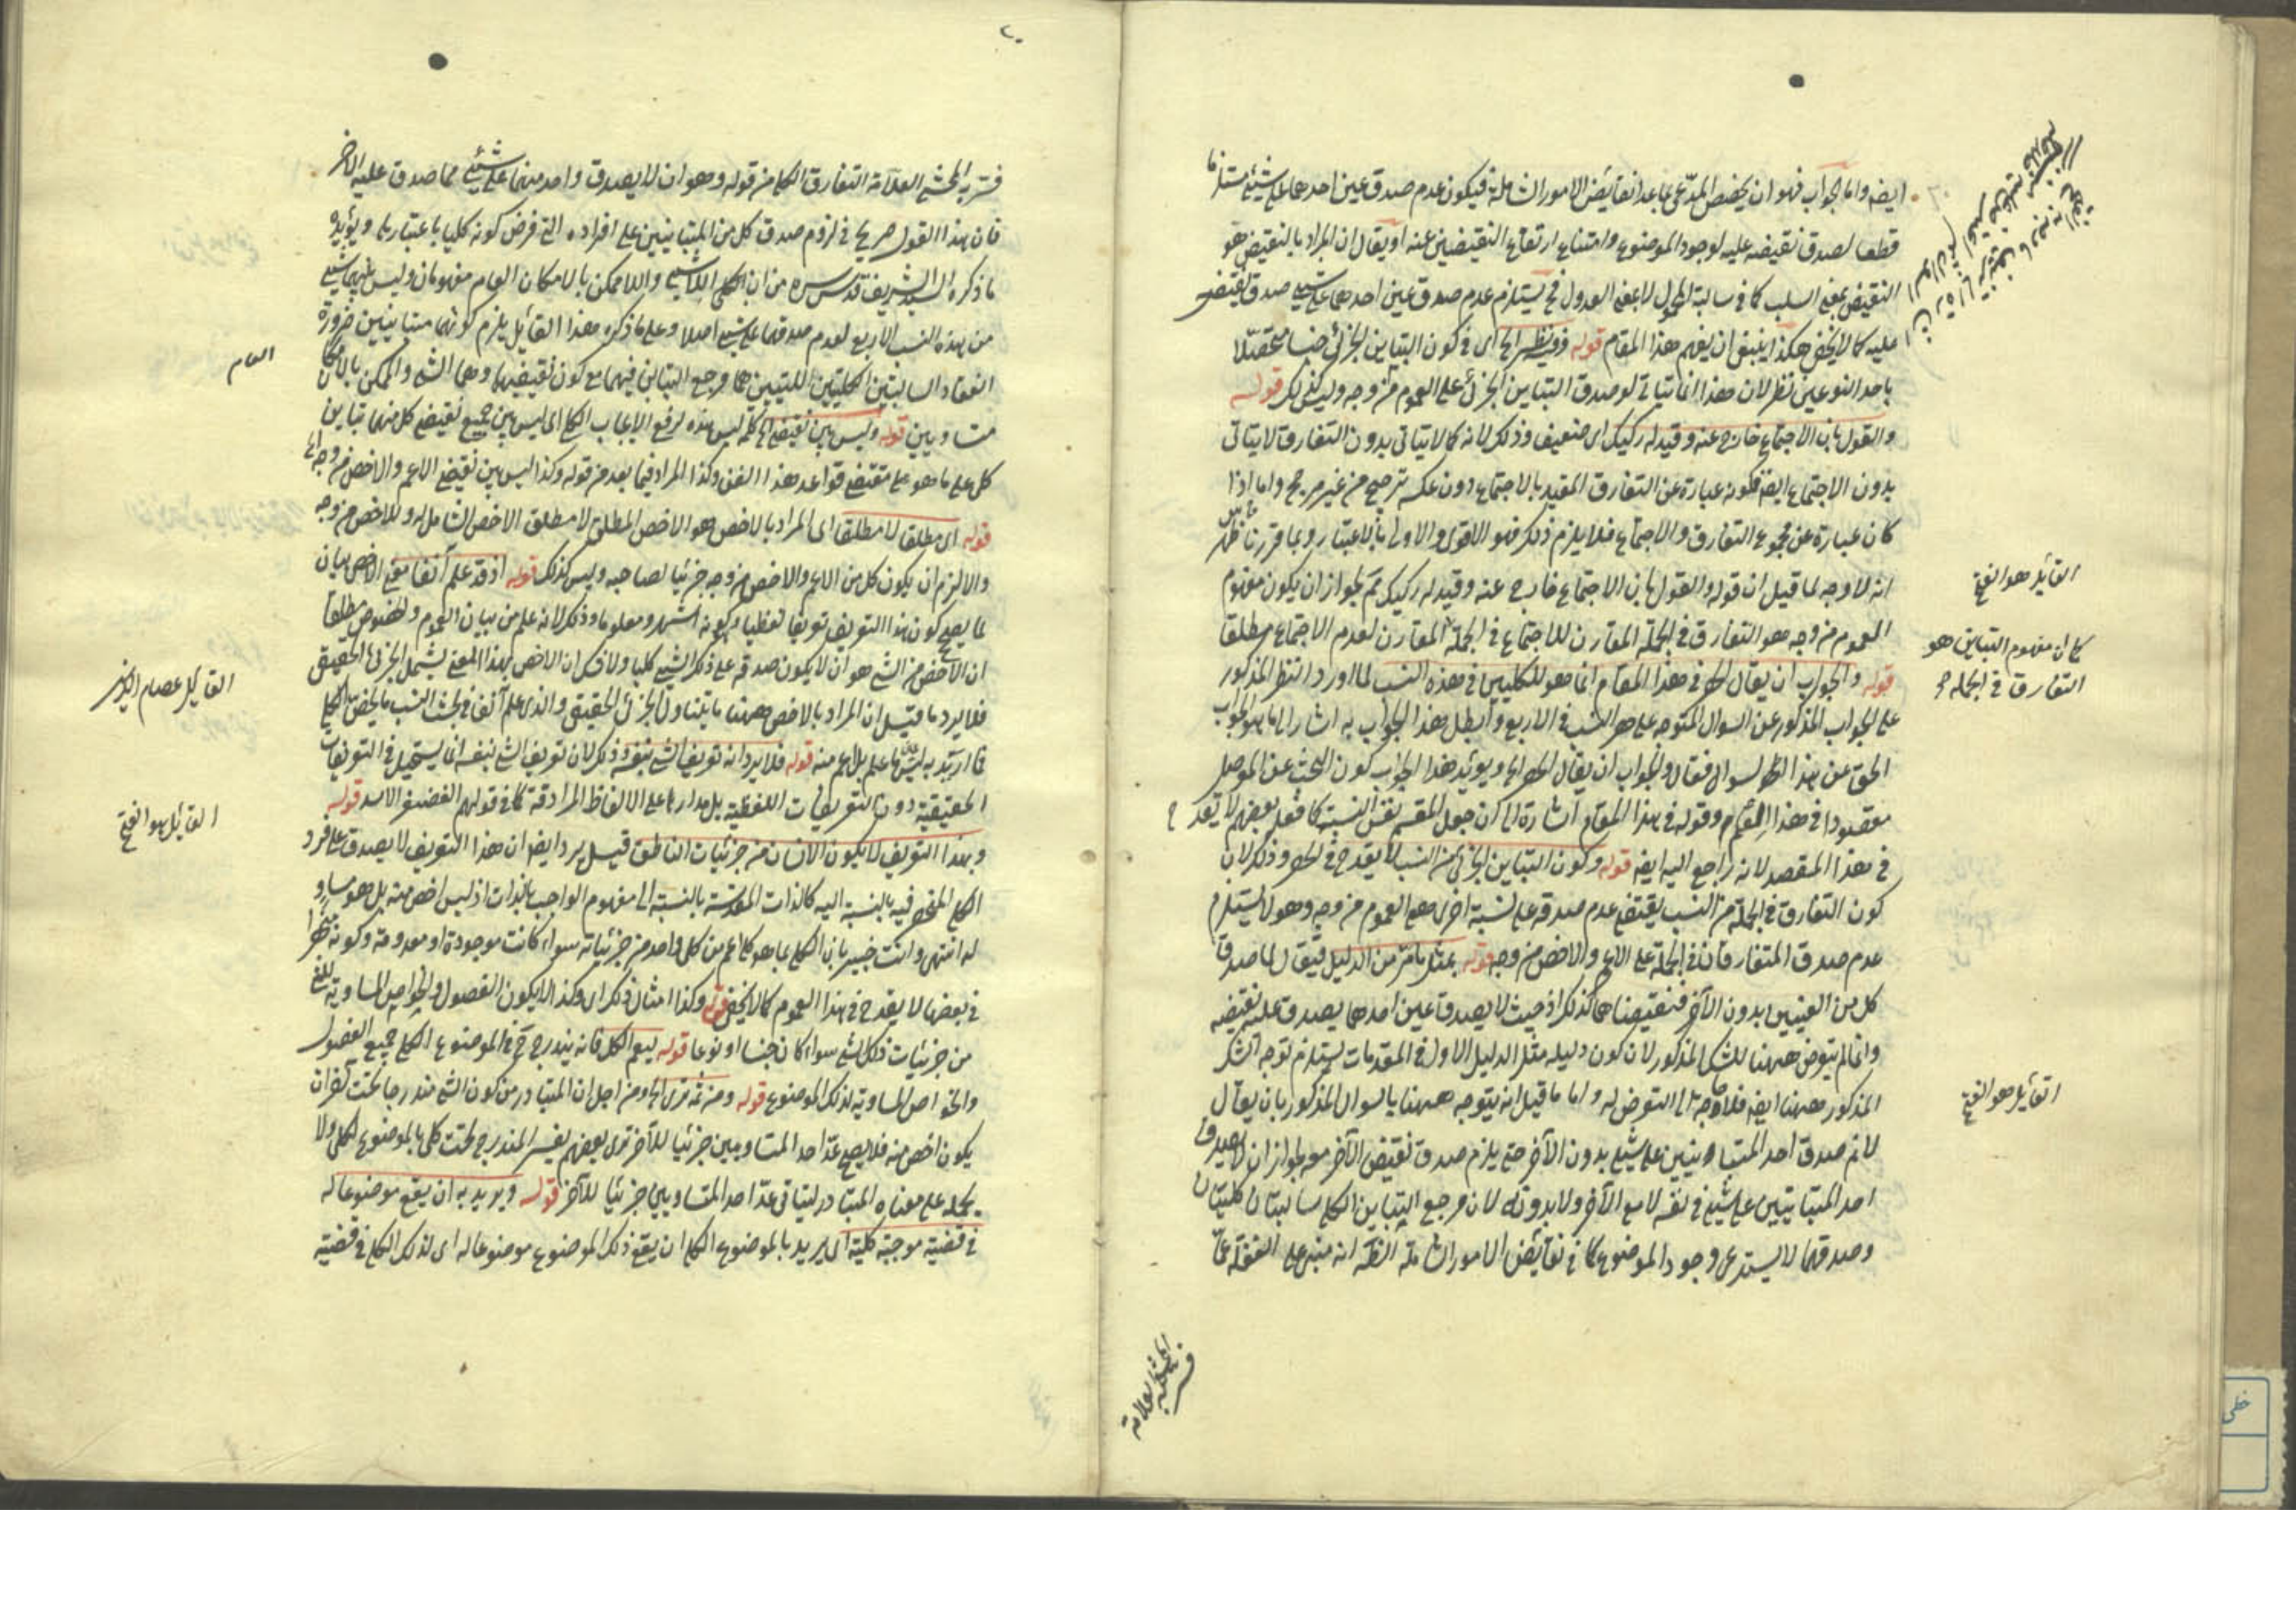 ايضا واما الجواب فهو ان يخصص المدعى بما عدا نقايض الامور الشاملة فيكون عدم صدق عين احدهما على شيئ مستلزما
قطعا لصدق نقيضه عليه لوجود الموضوع وامتناع ارتفاع النقيضين عنه او يقال ان المراد بالنقيض هو
النقيض بمعنى السلب كما في سالبة المحمول لا بمعنى العدول فح يستلزم عدم صدق عين احدهما على شيئ صدق نقيض
عليه كما لا يخفى هكذا ينبغي ان يفهم هذا المقام قوله وفيه نظر الخ اى في كون التباين الجزئي جنسا متحصلا
باحد النوعين نظر لان هذا انما يتاتى لو صدق التباين الجزئى على العموم من وجه وليس كذلك قوله
والقول بان الاجتماع خارج عنه وقيد له ركيك اى ضعيف وذلك لانه كما لا يتاتى بدون التفارق لا يتاتى
بدون الاجتماع ايضا فكونه عبارة عن التفارق المقيد بالاجتماع دون عكسه ترجيح من غير مرجح واما اذا
كان عبارة عن مجموع التفارق والاجتماع فلا يلزم ذلك فهو الاقوى والاولى بالاعتبار وبما قررنا ظهر
انه لا وجه لما قيل ان قوله والقول بان الاجتماع خارج عنه وقيد له ركيك ثم لجواز ان يكون مفهوم
العموم من وجه هو التفارق في الجملة المقارن للاجتماع في الجملة المقارن لعدم الاجتماع مطلقا
قوله والجواب ان يقال الحصر في هذا المقام انما هو للكليين في هذه النسب لما اورد النظر المذكور
على الجواب المذكور عن السوال المتوجه على حصر النسب في الاربع وابطل هذا الجواب به اشار الى ما هو الجواب
الحق عن هذا السوال فقال والجواب ان يقال الحصر الخ ويويد هذا الجواب كون البحث عن الموصل
مقصودا في هذا المقام وقوله في هذا المقام اشارة الى ان جعل المقسم نفس النسبة كما فعله بعضهم لا يقدح
في هذا المقصد لانه راجع اليه ايضا قوله وكون التباين الجزئى من النسب لا يقدح في الحصر وذلك لان
كون التفارق في الجملة من النسب يقتضي عدم صدقه على نسبة اخرى هي العموم من وجه وهو لا يستلزم
عدم صدق المتفارقان في الجملة على الاعم والاخص من وجه قوله بمثل ما مر من الدليل فيقال لما صدق
كل من العينين بدون الآخر فنقيضاهما كذلك اذ حيث لا يصدق عين احدهما يصدق عليه نقيضه
وانما لم يتعرض ههنا للشك المذكور لان كون دليله مثل الدليل الاول في المقدمات يستلزم توجه الشك
المذكور ههنا ايضا فلا وجه الى التعرض له واما ما قيل انه يتوجه ههنا يا السوال المذكور بان يقال
لا نم صدق احد المتباينين على شيئ بدون الآخر حتى يلزم صدق نقيض الآخر معه لجواز ان لا يصدق
احد المتباينين على شيئ في نفسه لا مع الآخر ولا بدونه لان مرجع التباين الكلي سالبتان كليتان
وصدقهما لا يستدعي وجود الموضوع كما في نقايض الامور الشاملة الظ انه مبني على الغفلة عما
القائل هو الفتح
كما ان مفهوم التباين هو
التفارق في الجملة
القائل هو الفتح
فسر به المحشى العلامة
٢٠
فسر به المحشى العلامة التفارق الكلي من قوله وهو ان لا يصدق واحد منهما على شيئ مما صدق عليه الآخر
فان هذا القول صريح في لزوم صدق كل من المتباينين على افراده التي فرض كونه كليا باعتبارها ويؤيده
ما ذكره السيد الشريف قدس سره من ان الكلي اللاشيئ واللاممكن بالامكان العام مفهومان وليس بينهما شيئ
من هذه النسب الاربع لعدم صدقهما على شيئ اصلا وعلى ما ذكره هذا القائل يلزم كونهما متباينين ضرورة
انعقاد السالبتين الكليتين اللتين هما مرجع التباين فيهما مع كون نقيضيهما وهما الشئ والممكن بالامكان
متساويين قوله وليس بين نقيضي الخ كلمة ليس هذه لرفع الايجاب الكلي اى ليس بين جميع نقيضي كل منهما تباين
كلي على ما هو على مقتضى قواعد هذا الفن وكذا المراد فيما بعد من قوله وكذا ليس بين نقيضي الاعم والاخص من وجه الخ
قوله اى مطلقا لا مطلقا اى المراد بالاخص هو الاخص المطلق لا مطلق الاخص الشامل له وللاخص من وجه
والا لزم ان يكون كل من الاعم والاخص من وجه جزئيا لصاحبه وليس كذلك قوله اذ قد علم آنفا معنى الاخص بيان
لما يصحح كون هذا التعريف تعريفا لفظيا وكونه اشهر ومعلوما وذلك لانه علم من بيان العموم والخصوص مطلقا
ان الاخص من الشئ هو ان لا يكون صدقه على ذلك الشيئ كليا ولا شك ان الاخص بهذا المعنى يشمل الجزئى الحقيقي
فلا يرد ما قيل ان المراد بالاخص ههنا ما يتناول الجزئى الحقيقي والذى علم آنفا في بحث النسب ما يخص الكلي
فما اريد به ليس ما علم بل اعم منه قوله فلا يرد انه تعريف الشئ بنفسه وذلك لان تعريف الشئ بنفسه انما يستحيل في التعريفات
الحقيقية دون التعريفات اللفظية بل مدارها على الالفاظ المرادفة كما في قولهم الغضنفر الاسد قوله
وبهذا التعريف لا يكون الانسان من جزئيات الناطق قيل يرد ايضا ان هذا التعريف لا يصدق على فرد
الكلي المنحصر فيه بالنسبة اليه كالذات المقدسة بالنسبة الى مفهوم الواجب بالذات اذ ليس اخص منه بل هو مساو
له انتهى وانت خبير بان الكلي بما هو كلي اعم من كل واحد من جزئياته سواء كانت موجودة او معدومة وكونه منحصرا
في بعضها لا يقدح في هذا العموم كما لا يخفى قوله وكذا امثال ذلك اى وكذا لا يكون الفصول والخواص المساوية للشئ
من جزئيات ذلك الشئ سواء كان جنسا او نوعا قوله ليعم الكل فانه يندرج ح في الموضوع الكلي جميع الفصول
والخواص المساوية لذلك الموضوع قوله ومن ثمه ترى الخ ومن اجل ان المتبادر من كون الشئ مندرجا تحت آخر ان
يكون اخص منه فلا يصح عد احد المتساويين جزئيا للآخر ترى بعضهم يفسر المندرج تحت كلي بالموضوع الكلي ولا
يحمله على معناه المتبادر ليتاتى عد احد المتساويين جزئيا للآخر قوله ويريد به ان يقع موضوعا له
في قضية موجبة كلية اى يريد بالموضوع الكلي ان يقع ذلك الموضوع موضوعا له اى لذلك الكلي في قضية
العام
القايل عصام الدين
القائل هو الفتح